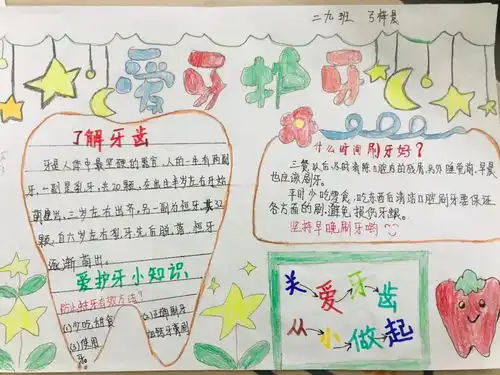 二九班 弓梓晨
爱护牙
了解牙齿
牙是人体中最坚硬的器官,人的一生有两副
牙,一副是乳牙,共20颗,在出生半岁左右开始
萌出,三岁左右出齐,另一副为恒牙,共32
颗,自六岁左右乳牙先后脱落,恒牙
逐渐萌出。
爱护牙小知识
防止蛀牙有效方法?
(1)少吃甜食
(2)正确刷牙
(3)使用
什么时间刷牙好?
三餐以后及时清除口腔内的残屑,另外睡觉前、早晨
也应该刷牙。
平时少吃零食,吃东西后清洁口腔刷牙要保证
各方面的刷,避免损伤牙龈。
坚持早晚刷牙哟
关爱牙齿
从小做起